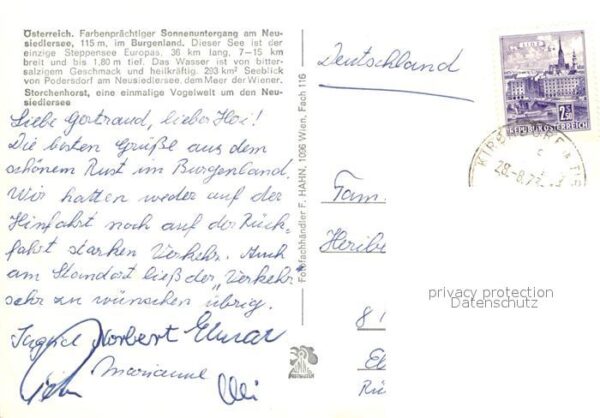 Österreich. Farbenprächtiger Sonnenuntergang am Neu-
siedlersee, 115 m, im Burgenland. Dieser See ist der
einzige Steppensee Europas. 36 km lang, 7—15 km
breit und bis 1,80 m tief. Das Wasser ist von bitter-
salzigem Geschmack und heilkräftig. 293 km² Seeblick
von Podersdorf am Neusiedlersee. dem Meer der Wiener.
Storchenhorst, eine einmalige Vogelwelt um den Neu-
siedlersee
Liebe Gertraud, lieber Hei!
Die besten Grüße aus dem
schönem Rust im Burgenland.
Wir hatten weder auf der
Hinfahrt noch auf der Rück-
fahrt starken Verkehr. Auch
am Standort ließ der "Verkehr"
sehr zu wünschen übrig.
Ingrid Norbert Elmar
Marianne
Fotofachhändler F. HAHN, 1096 Wien, Fach 116
Deutschland
LINZ
2.50
REPUBLIK ÖSTERREICH
28.-8.7
Fam.
Heribe
privacy protection
Datenschutz
8